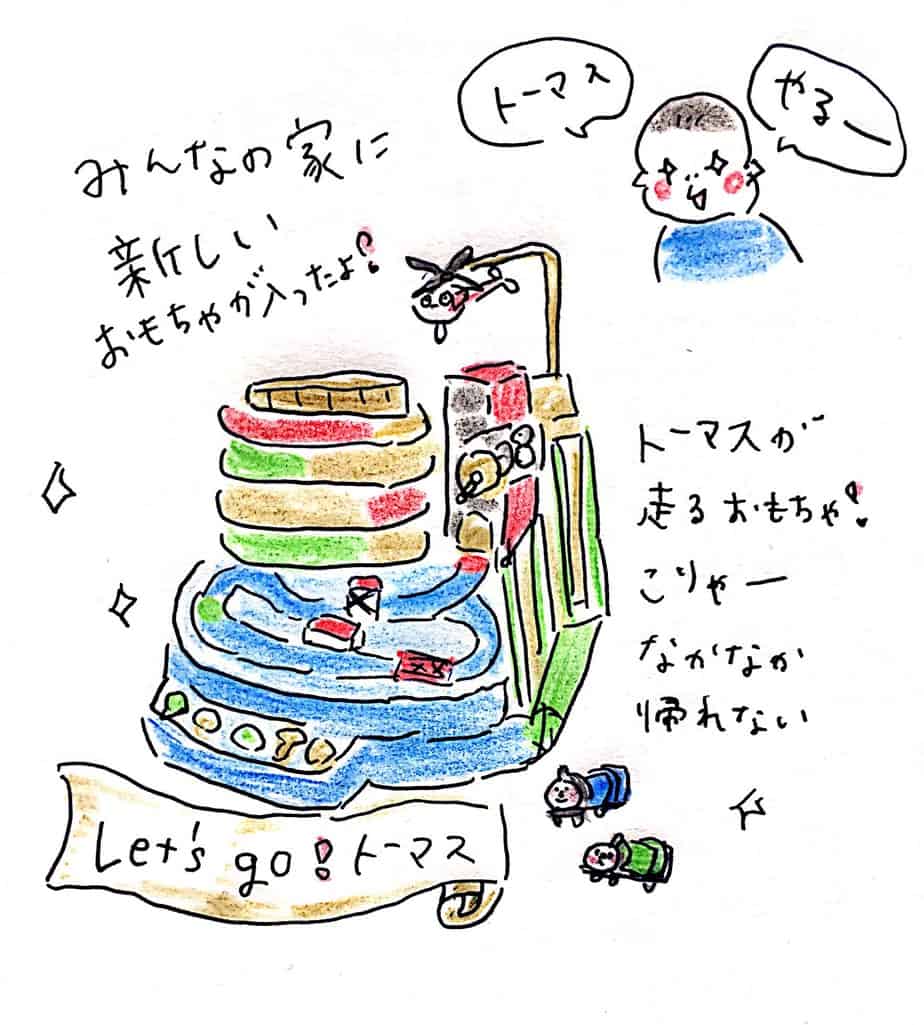 トーマス
やるー
みんなの家に
新しい
おもちゃが入ったよ!
トーマスが
走るおもちゃ!
こりゃー
なかなか
帰れない
Let's go!トーマス